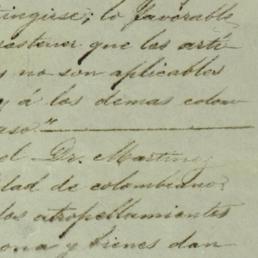 tingirse; lo favorable
restener que los arti
s no son aplicables
y á los demas colom
aso."
el Dr. Martinez
dad de colombiano:
los atropellamientos
ona y bienes dan